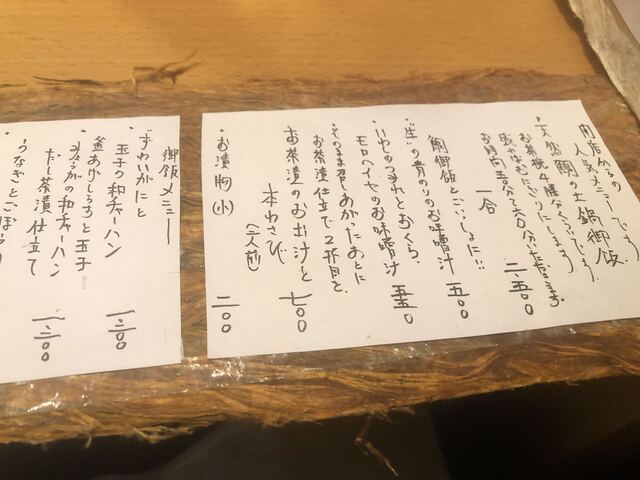 開店からの
人気メニューです
・天然鯛の土鍋御飯
お茶碗4膳分くらいです。
残ればおむすびにします。
お時間五〇分〜六〇分いただきます。
一合 二.五〇〇
鯛御飯とごいっしょに!!
・"生"の青のりのお味噌汁 五〇〇
・いわしのつみれとおくら、
モロヘイヤのお味噌汁 五五〇
・そのまま召しあがったあとに
お茶漬仕立で2杯目を、
お茶漬のお出汁と
本わさび (一人前) 七〇〇
・お漬物(小) 二〇〇
御飯メニュー
・ずわいがにと
玉子の和チャーハン 一.二〇〇
・釜あげしらすと玉子
みょうがの和チャーハン
だし茶漬仕立て 一.二〇〇
・うなぎとごぼう